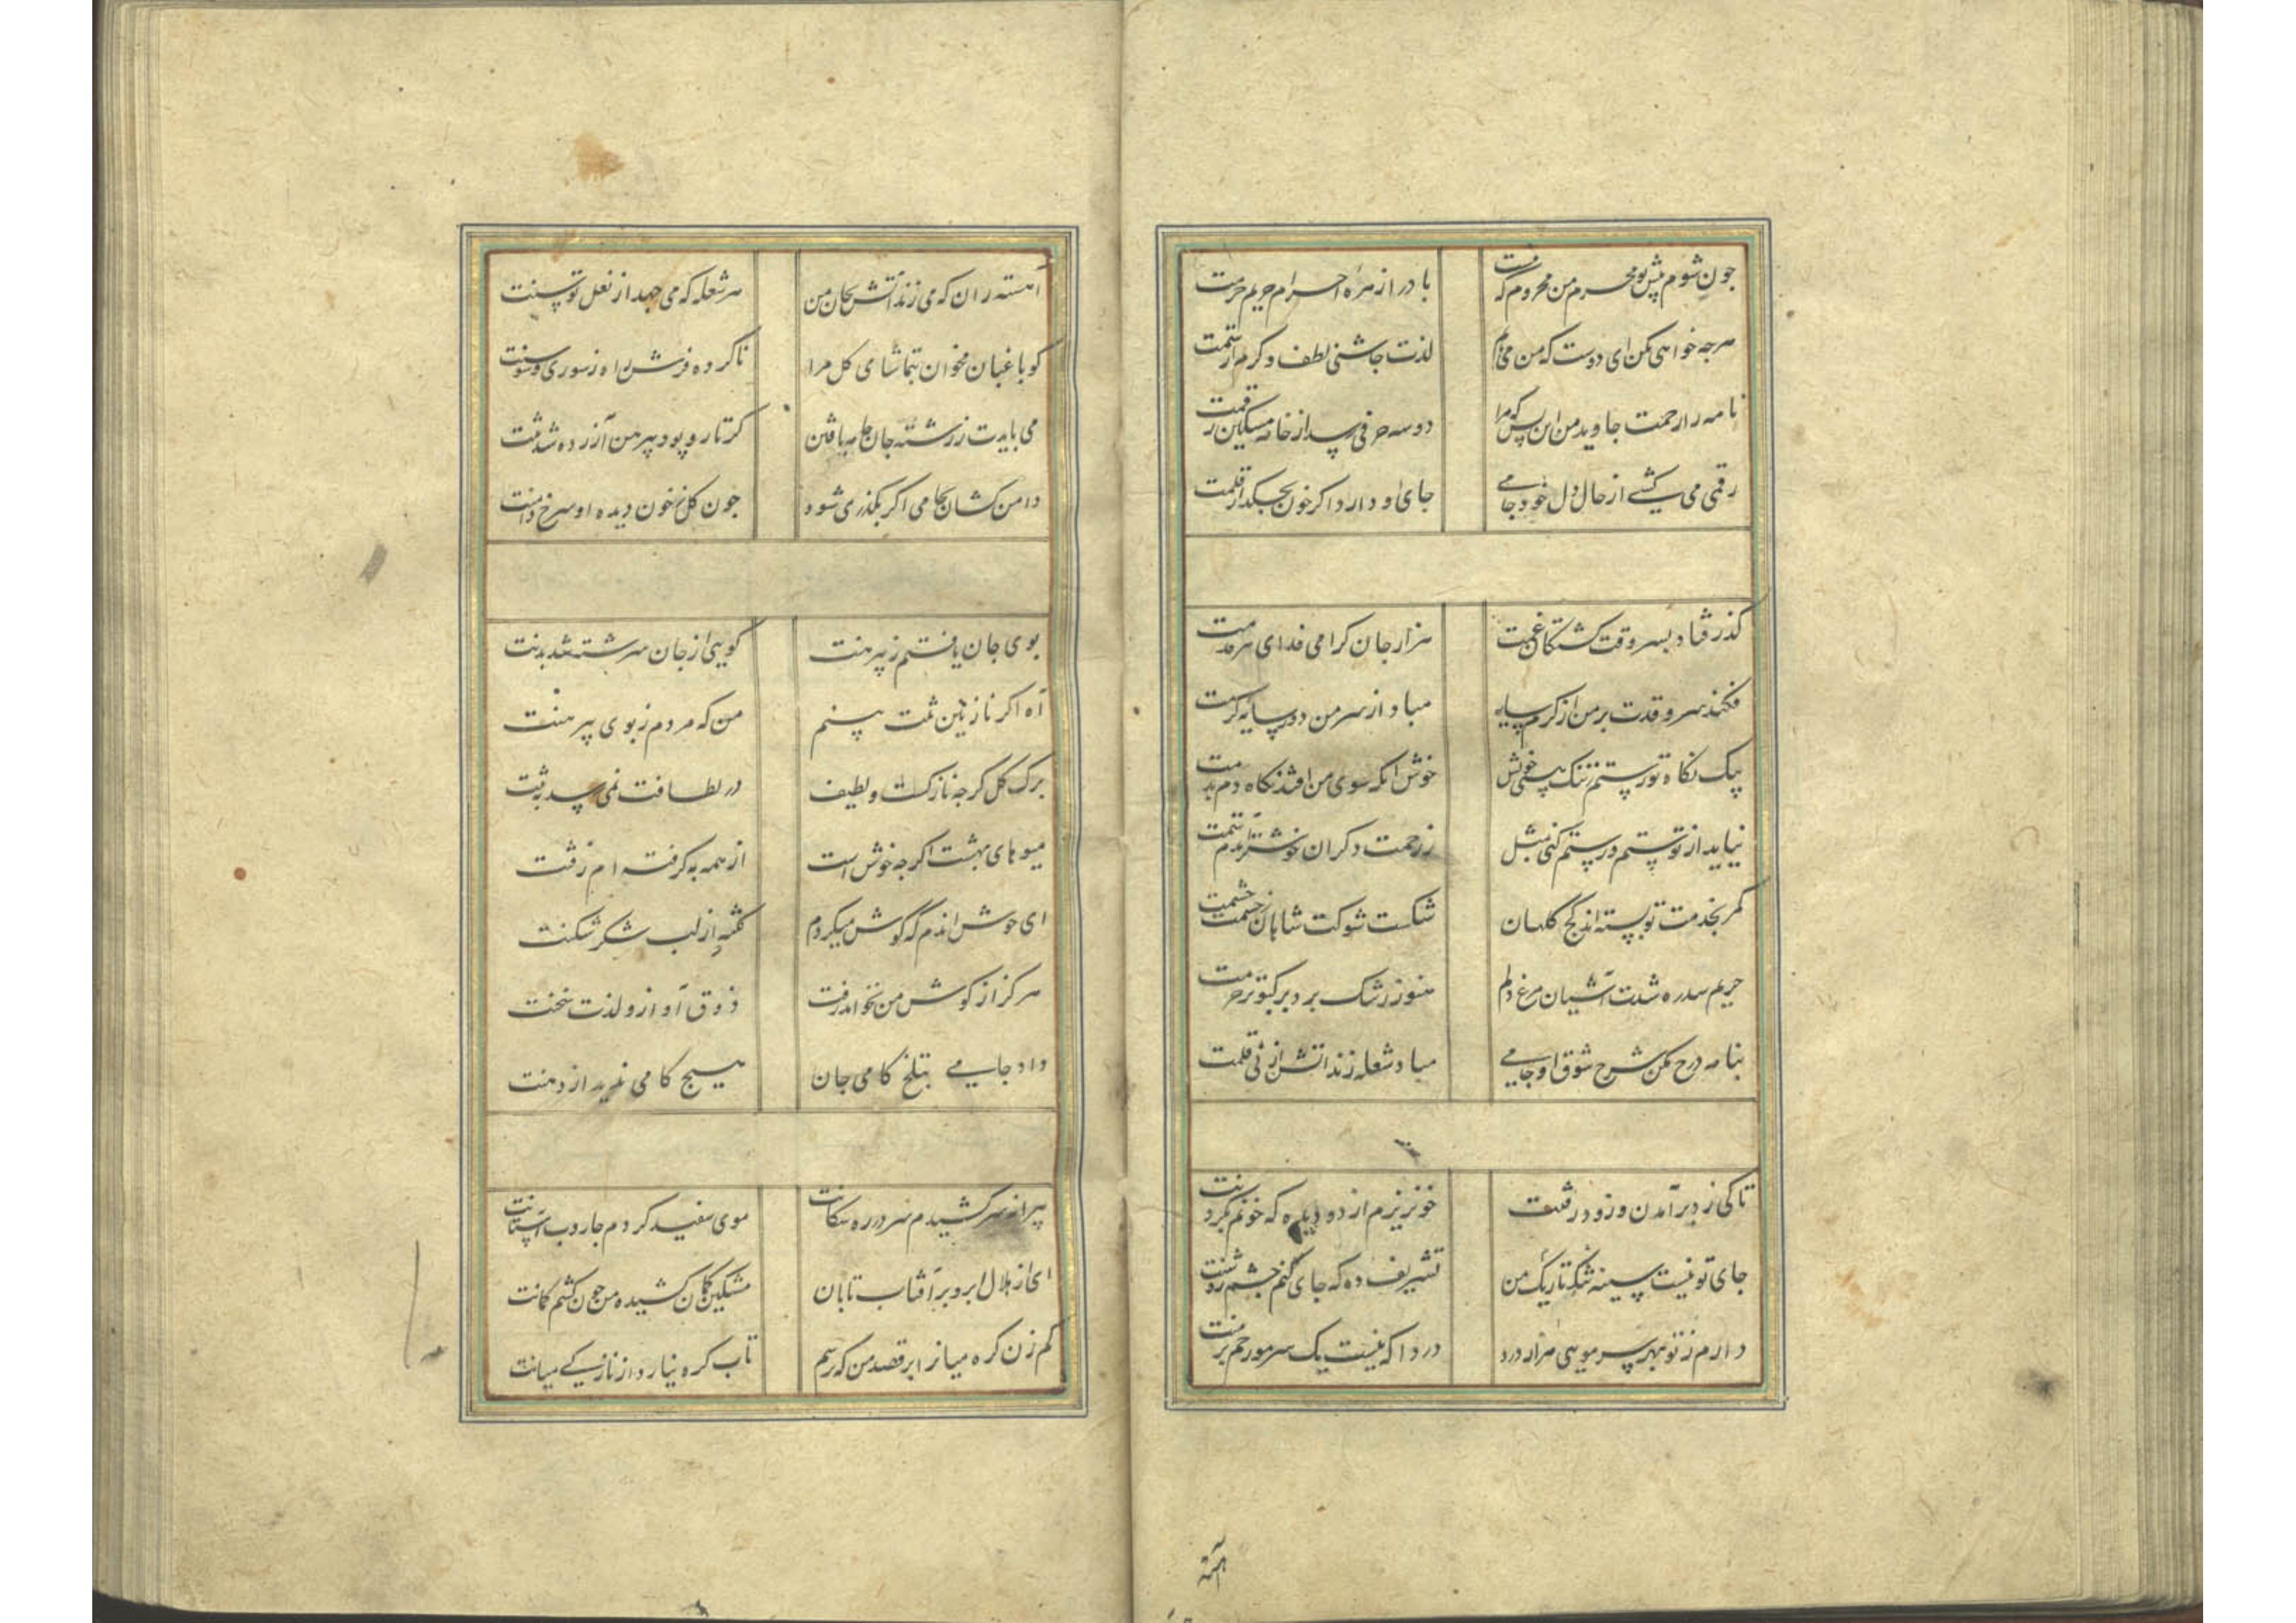 چون شوم پیش تو محرم من محروم که هست باد را از مژه احرام حریم حرمت
هرجه خواهی بکن ای دوست که من می‌دانم لذت جاشنی لطف و کرم از ستمت
نامه را رحمت جاوید من این بس که مرا دو سه حرفی رسد از خامه مشکین رقمت
رقمی می‌کشی از حال دل خود جامی جای او دارد اکر خون بچکد از قلمت
کذر فتاد بسر وقت کشتکان غمت هزار جان کرامی فدای هر قدمت
فکند سرو قدت بر من از کرم سایه مباد از سر من دور سایه کرمت
پیک نکاه تو رستم ز ننک هستی خویش خوش انکه سوی من افتد نکاه دم بدمت
نیاید از تو ستم ور ستم کنی بمثل ز رحمت دکران خوشتر آیدم ستمت
کمر بخدمت تو بسته اند کج کلهان شکست شوکت شاهان ز حشمت حشمت
حریم سدره شدت آشیان مرغ دلم هنوز رشک برد بر کبوتر حرمت
بنامه درج مکن شرح شوق او جامی مباد شعله زند اتش از نی قلمت
تا کی ز دیر آمدن و زود رفتنت خون ریزم از دو دیده که خونم بگردنت
جای تو نیست سینه تنک تاریک من تشریف ده که جای کنم چشم روشنت
دارم ز تو بهر سر مویی هزار درد دردا که نیست یک سر مو رحم بر منت
آهسته
آهسته ران که می زند آتش بجان من هر شعله که می جهد از نعل توسنت
کو باغبان مخوان بتماشای کل مرا ناکرده فرش راه ز سوری و سوسنت
می بایدت ز رشته جان جامه بافتن کز تار و پود پیرهن آزرده شد تنت
دامن کشان بجامی اکر بکذری شود جون کل ز خون دیده او سرخ دامنت
بوی جان یافتم ز پیرهنت کویی از جان سرشته شد بدنت
آه اکر نازنین تنت بینم من که مردم ز بوی پیرهنت
برک کل کرجه نازکست و لطیف در لطافت نمی رسد بتنت
میوهای بهشت اکرجه خوش است از همه به کرفته ام ذقنت
ای خوش اندم که گوش میکردم نکته از لب شکر شکنت
هرکز از کوش من نخواهد رفت ذوق آواز و لذت سخنت
داد جامی بتلخ کامی جان هیج کامی ندید از دهنت
پیرانه سر کشیدم سر در ره سکانت موی سفید کردم جاروب آستانت
ای از هلال ابرو بر آفتاب تابان مشکین کمان کشیده من جون کشم کمانت
کم زن کره میانرا بر قصد من که رسم تاب کره نیارد از نازکی میانت